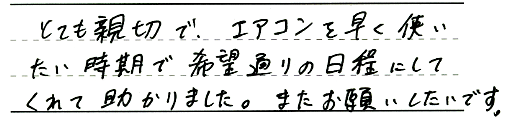 とても親切で、エアコンを早く使い
たい時期で希望通りの日程にして
くれて助かりました。またお願いしたいです。